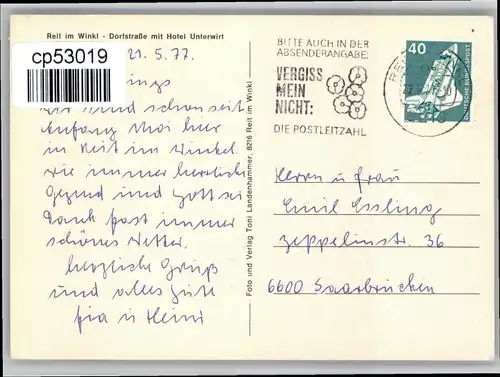 Reit im Winkl - Dorfstraße mit Hotel Unterwirt
cp53019
21.5.77
wir sind schon seit
Anfang Mai hier
in Reit im Winkel
wie immer herrliche
Gegend und Gott sei
Dank fast immer
schönes Wetter.
herzliche Grüß
und alles Gute
Pia u Heini
Foto und Verlag Toni Landenhammer, 8216 Reit im Winkl
BITTE AUCH IN DER
ABSENDERANGABE:
VERGISS
MEIN
NICHT:
DIE POSTLEITZAHL
40
DEUTSCHE BUNDESPOST
Herrn u Frau
Emil Essling
Zeppelinstr. 36
6600 Saarbrücken